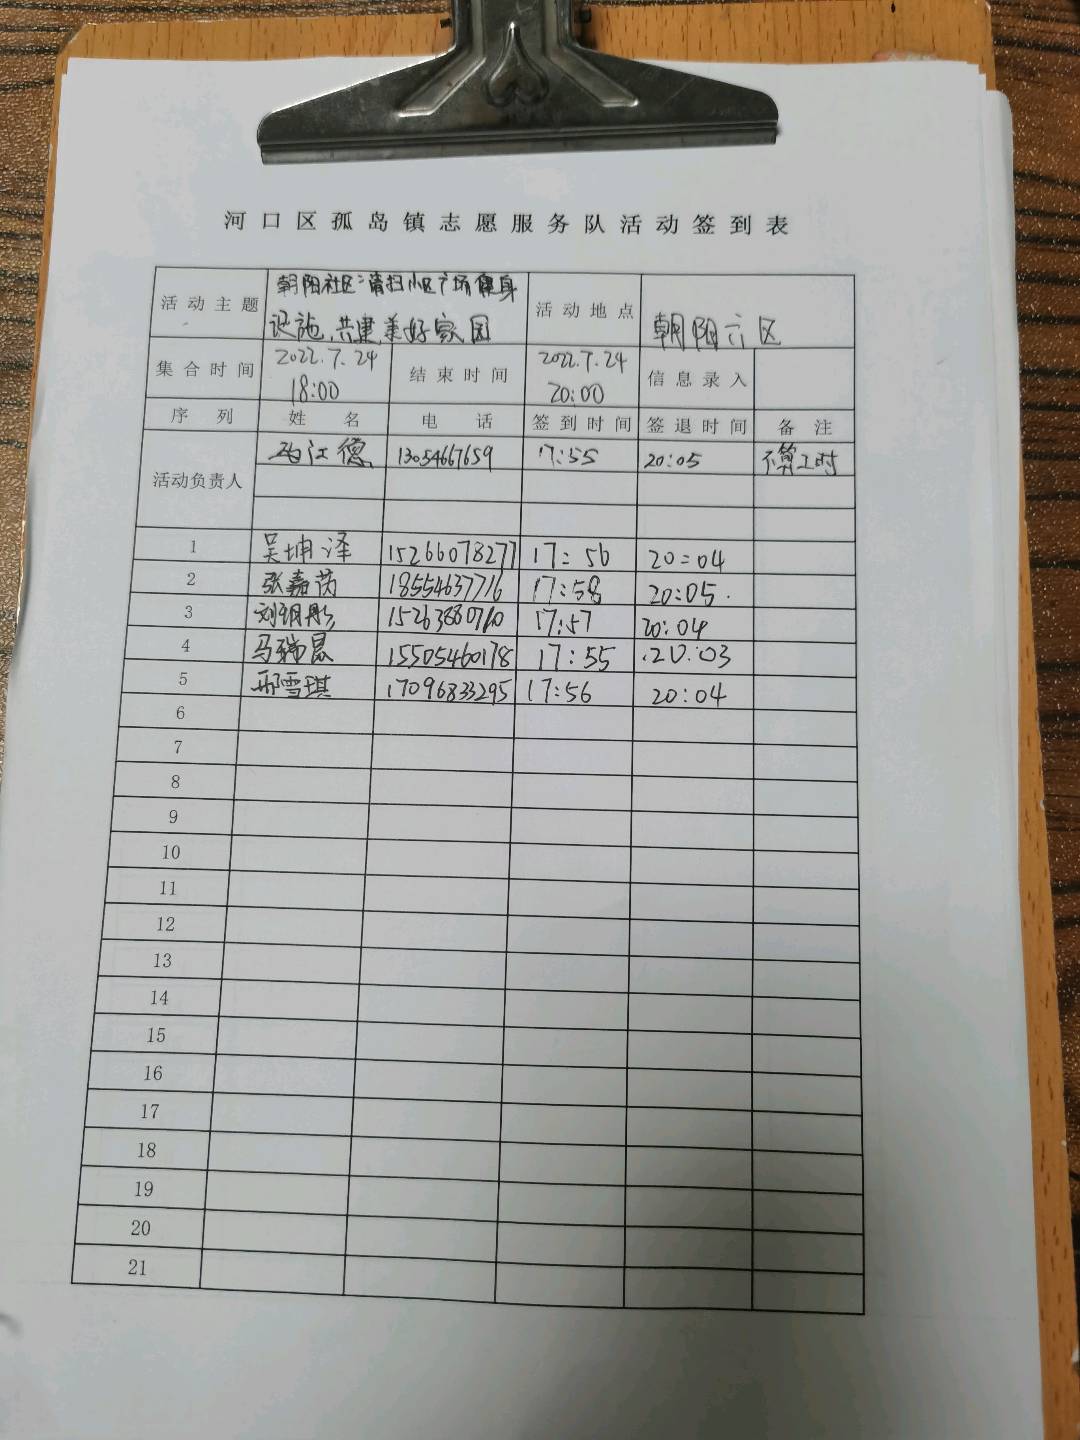 河口区孤岛镇志愿服务队活动签到表
活动主题 朝阳社区清扫小区广场健身 活动地点
设施,共建美好家园 朝阳六区
集合时间 2022.7.24 结束时间 2022.7.24 信息录入
18:00 20:00
序列 姓名 电话 签到时间 签退时间 备注
活动负责人 江德 13054667659 17:55 20:05 不算工时
1 吴坤泽 15266078277 17:56 20:04
2 张嘉芮 18554637716 17:58 20:05.
3 刘钥彤 15263880710 17:57 20:04
4 马瑞晨 15505460178 17:55 20:03
5 邢雪琪 17096833295 17:56 20:04
6
7
8
9
10
11
12
13
14
15
16
17
18
19
20
21